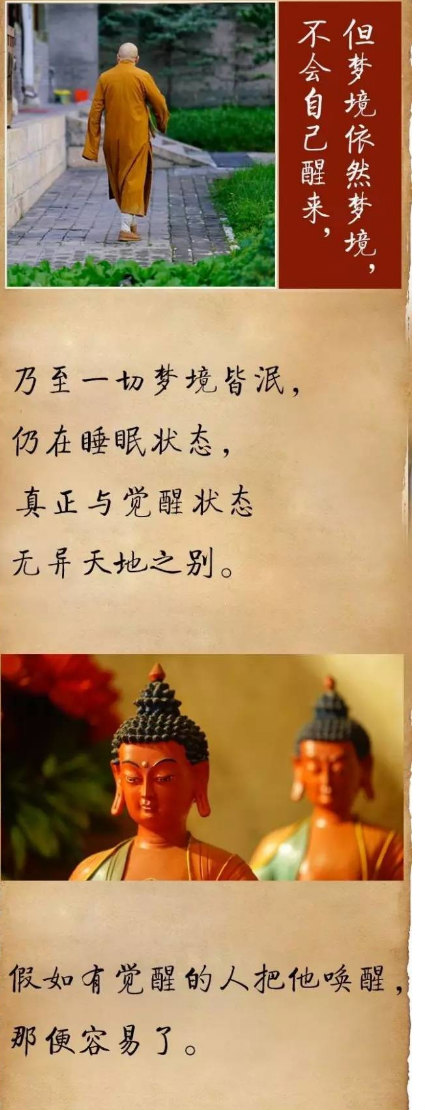 但梦境依然梦境，
不会自己醒来，
乃至一切梦境皆泯，
仍在睡眠状态，
真正与觉醒状态
无异天地之别。
假如有觉醒的人把他唤醒，
那便容易了。